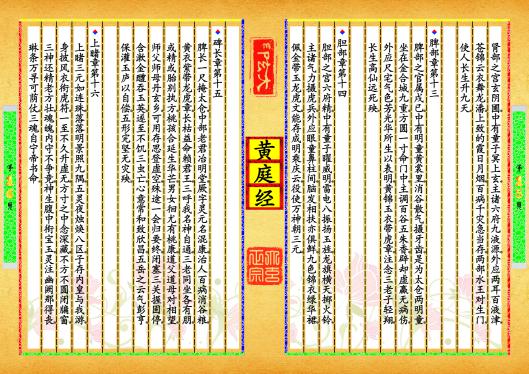 肾部之宫玄阙圆中有童子冥上玄主诸六府九液源外应两耳百液津
苍锦云衣舞龙潘上致明霞日月烟百病千灾急当存两部水王对生门
使人长生升九天
脾部章第十三
脾部之宫属戊己中有明童黄裳里消谷散气摄牙齿是为太仓两明童
坐在金台城九重方圆一寸命门中主调百谷五味香辟却虚羸无病伤
外应尺宅气色芳光华所生以表明黄锦玉衣带虎章注念三老子轻翔
长生高仙远死殃
胆部章第十四
胆部之宫六府精中有童子曜威明雷电八振扬玉旌龙旗横天掷火铃
主诸气力摄虎兵外应眼童鼻柱间脑发相扶亦俱鲜九色锦衣绿华裙
佩金带玉龙虎文能存威明乘庆云役使万神朝三元
黄庭经
脾长章第十五
脾长一尺掩太仓中部老君治明堂厥字灵元名混康治人百病消谷粮
黄衣紫带龙虎章长精益命赖君王三呼我名神自通三老同坐各有朋
或精或胎别执方桃孩合延生华芒男女徊九有桃康道父道母对相望
师父师母丹玄乡可用存思登虚空殊途一会归要终闭塞三关握固停
含漱金醴吞玉英遂至不饥三虫亡心意常和致欣昌五岳之云气彭亨
保灌玉庐以自偿五形完坚无灾殃
上睹章第十六
上睹三元如连珠落落明景照九隅五灵夜烛焕八区子存内皇与我游
身披凤衣衔虎符一至不久升虚无方寸之中念深藏不方不圆闭牖窗
三神还精老方壮魂魄内守不争竞神生腹中衔玉珰灵注幽阙那得丧
琳条万寻可荫仗三魂自宁帝书命